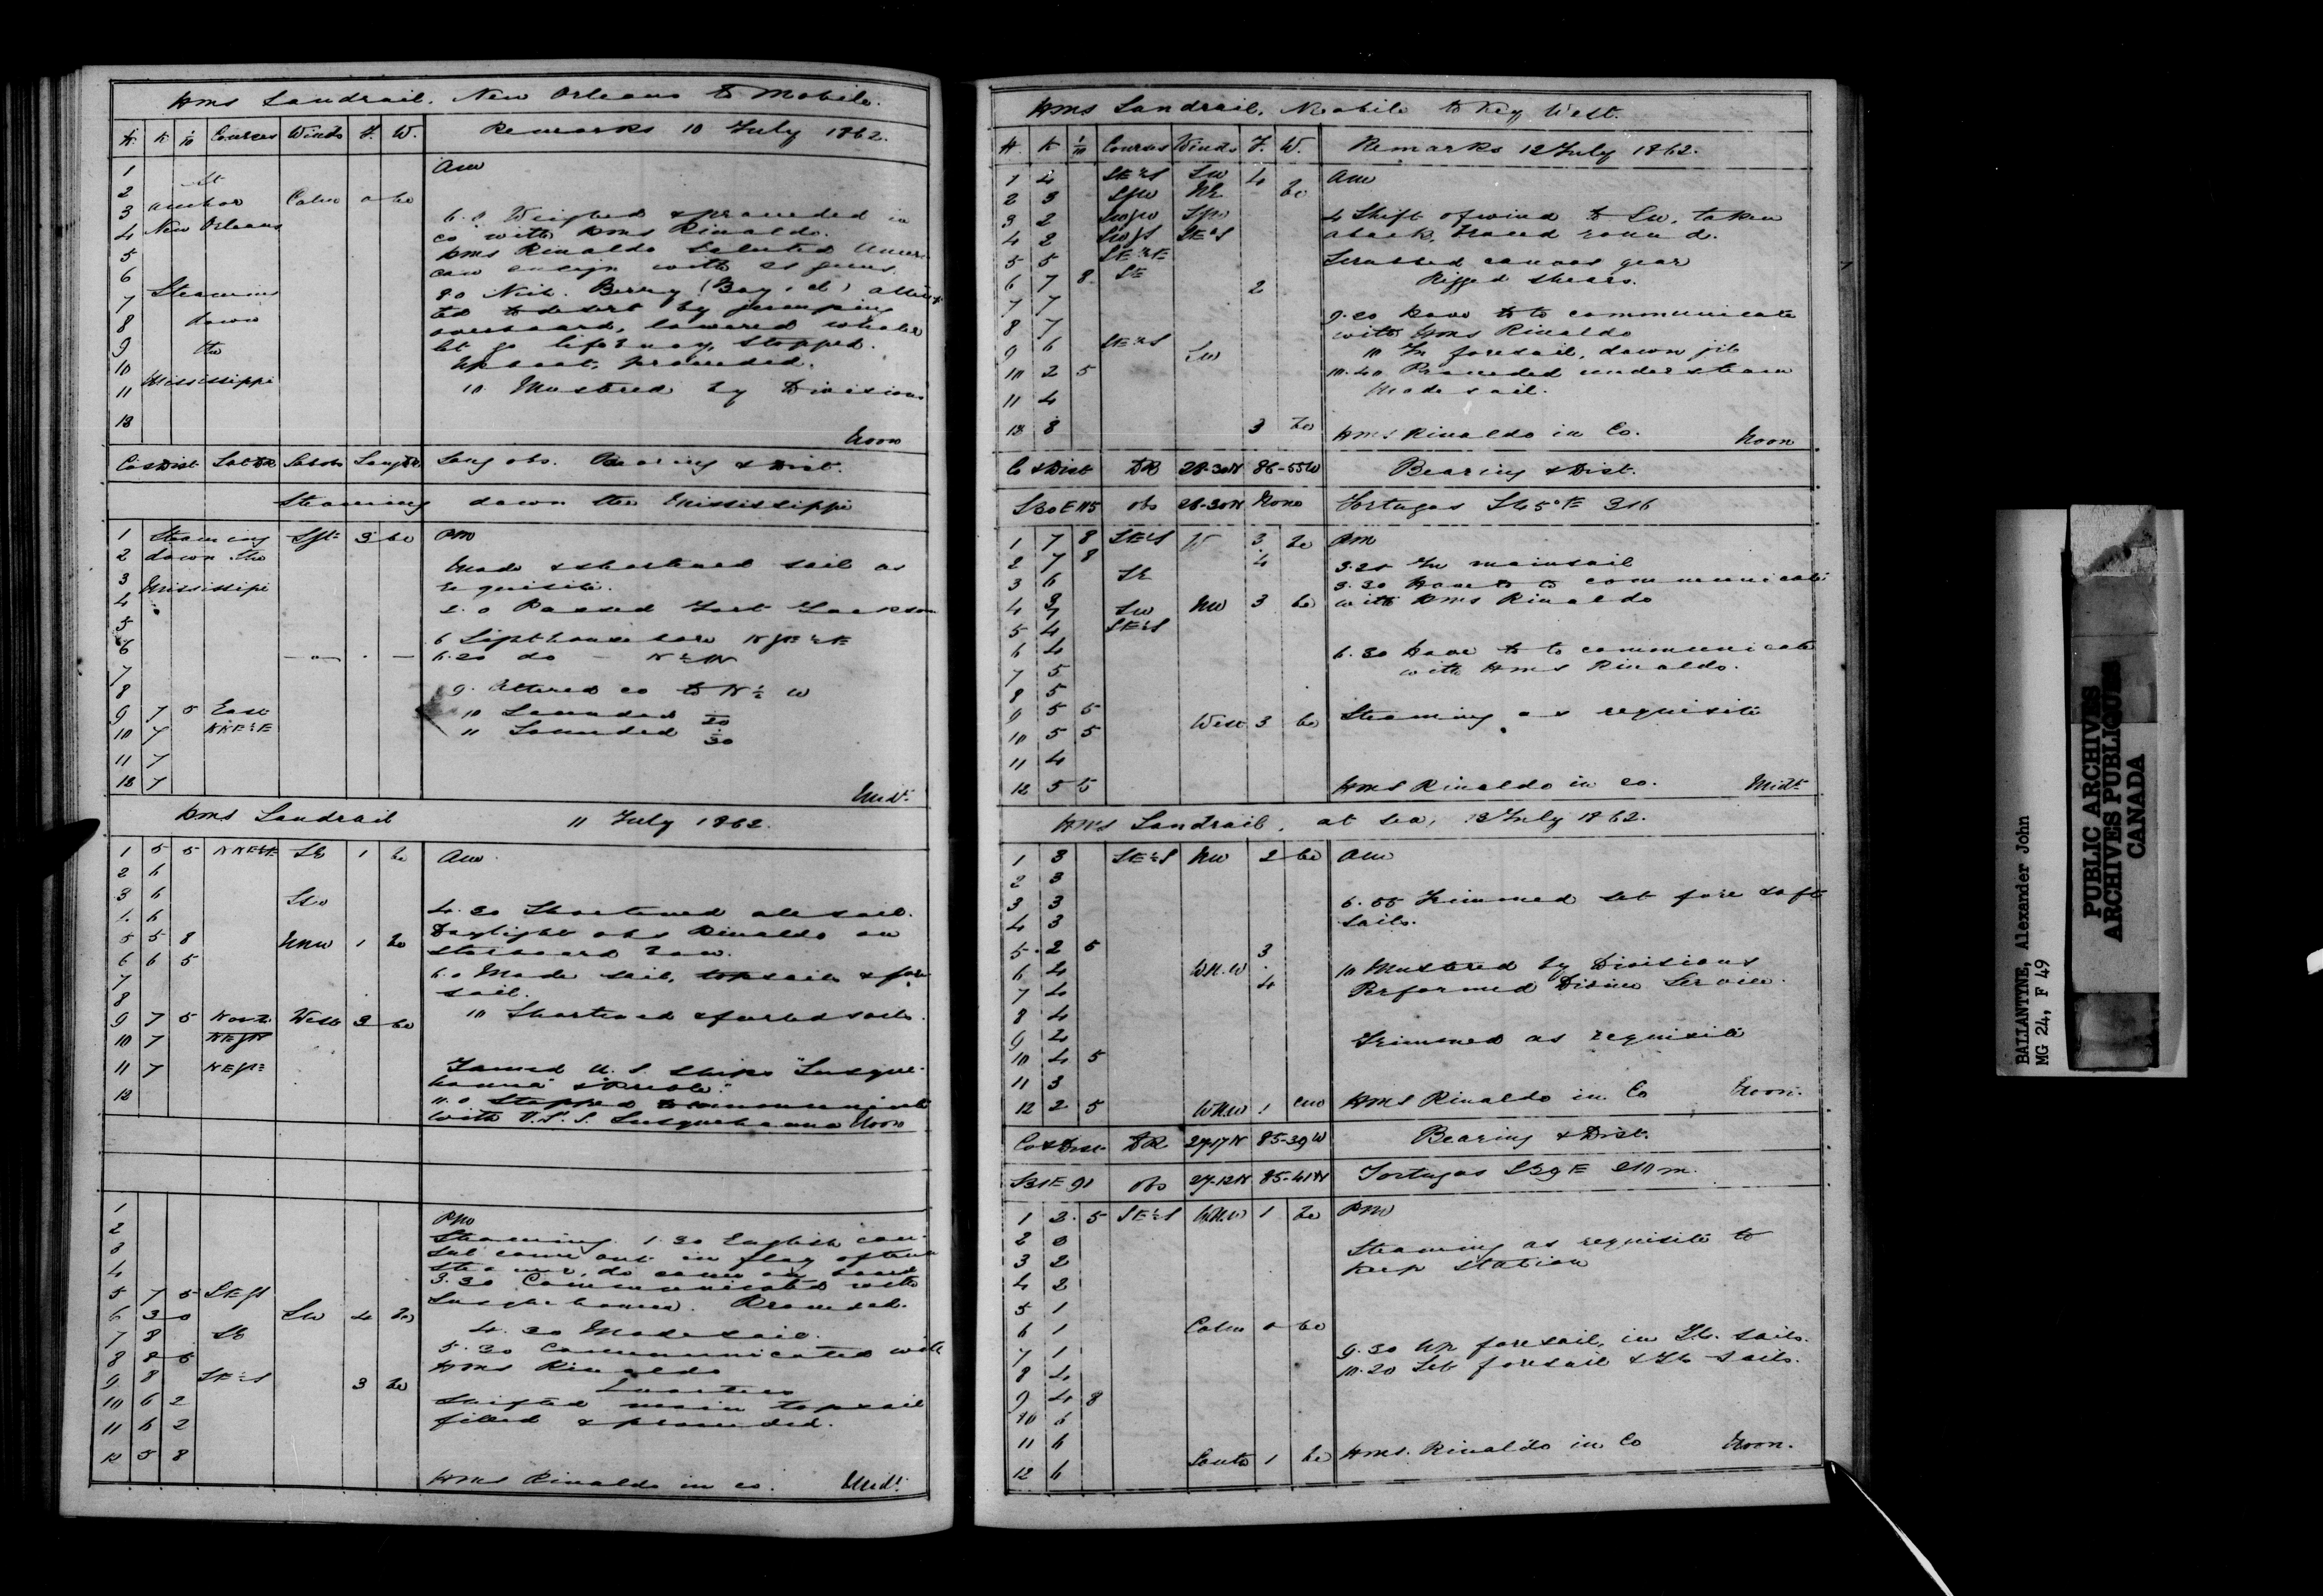 HMS Landrail. New Orleans to Mobile.
H. K 1/10 Courses Winds F. W. Remarks 10 July 1862.
1 AM
2 At
3 anchor Calm 0 bc
4 New Orleans 6.0 Weighed & proceeded in
co with HMS Rinaldo.
5 HMS Rinaldo saluted Ameri
6 can ensign with 21 guns.
7 Steaming 8.0 Berry (Boy, cl) attemp
8 down ted to desert by jumping
overboard, lowered whaler
9 the let go lifebuoy, stopped.
10 Up boat, proceeded.
11 Mississippi 10 Mustered by Divisions
12
Noon
Co & Dist Lat DR Lat obs Long DR Long obs. Bearing & Dist.
Steaming down the Mississippi
1 Steaming 3 bc PM
2 down the
3 Mississipi Made & shortened sail as
4 requisite.
5 2.0 Passed Fort Jackson
6 6 Lighthouse bore
6.20 do
7
8 9. Altered co to N 1/2 W
9 7 5 East 10 Sounded 20
10 7 11 Sounded 30
11 7
12 7
Midt.
HMS Landrail 11 July 1862.
1 5 5 NNE1/2E SE 1 bc AM
2 6
3 6 SSW
4 6 4.30 Shortened all sail.
5 5 8 NNW 1 bc Daylight obs Rinaldo on
6 6 5 starboard bow.
7 6.0 Made sail, topsails & fore
8 sail.
9 7 5 North West 3 bc 10 Shortened & furled sails.
10 7 NEbN
11 7 Joined U.S. Ships "Susque-
12 hanna" &
11.0 Stopped to communicate
with U.S.S. Susquehanna Noon
1 PM
2 Steaming. 1.30 English con-
3 sul came out in flag of truce
4 steamer, do came on board
5 7 5 3.30 Communicated with
6 3 0 SW 4 bc Susquehanna. Proceeded.
7 8 SE 4.30 Made sail.
8 8 5 5.30 Communicated with
9 8 SE1/2S 3 bc HMS Rinaldo
10 6 2 Quarters
Shifted main topsail
11 6 2 filled & proceeded.
12 5 8
HMS Rinaldo in co. Midt.
HMS Landrail, Mobile to Key West.
H. K 1/10 Courses Winds F. W. Remarks 12 July 1862.
1 4 SE1/2S SW 4 AM
2 3 bc
3 2 4 Shift of wind to SW, taken
4 2 aback, braced round.
5 5 Scrubbed canvas gear
6 7 8 SE 2 Rigged shears.
7 7
8 7 9.20 Hove to to communicate
with HMS Rinaldo
9 6 SE1/2S SW 10 In foresail, down jib
10 2 5 10.40 Proceeded under steam
11 4 Made sail.
12 8 3 bc HMS Rinaldo in Co. Noon
Co & Dist DR 28-30N 86-55W Bearing & Dist.
S30E 115 obs 28-30N None Tortugas S45°E 316
1 7 8 SE1/2S W 3 bc PM
2 7 8 4 3.20 In mainsail
3 6 SE 3.30 Hove to to communicate
4 SW NW 3 bc with HMS Rinaldo
5 4 SE1/2S
6 4 6.30 Hove to to communicate
7 5 with HMS Rinaldo.
8 5
9 5 5 West 3 bc Steaming as requisite
10 5 5
11 4
12 5 5 HMS Rinaldo in co. Midt.
HMS Landrail, at sea, 13 July 1862.
1 3 SE1/2S NW 2 bc AM
2 3
3 3 6.55 Trimmed set fore & aft
4 3 sails.
5 2 5 3
6 4 WNW 10 Mustered by Divisions
7 4 4 Performed Divine Service.
8 4
9 4 Trimmed as requisite
10 4 5
11 3
12 2 5 WNW 1 HMS Rinaldo in Co Noon.
Co & Dist DR 27-17N 85-39W Bearing & Dist.
S31E 91 obs 27-12N 85-41W Tortugas S39E 210 m.
1 2 5 SE1/2S WNW 1 bc PM
2 3 Steaming as requisite to
3 2 keep station
4 2
5 1
6 1 Calm 0 bc
7 1 9.30 Up foresail, in sails.
8 4 10.20 Set foresail & sails.
9 4 8
10 6
11 6
12 6 South 1 bc HMS. Rinaldo in Co Noon.
BALLANTYNE, Alexander John
MG 24, F 49
PUBLIC ARCHIVES
ARCHIVES PUBLIQUES
CANADA